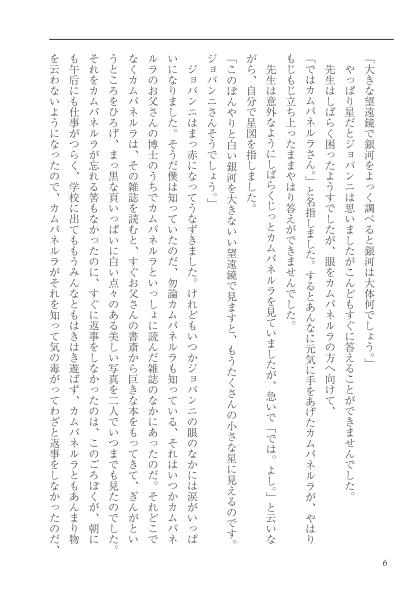 「大きな望遠鏡で銀河をよっく調べると銀河は大体何でしょう。」
やっぱり星だとジョバンニは思いましたがこんどもすぐに答えることができませんでした。
先生はしばらく困ったようすでしたが、眼をカムパネルラの方へ向けて、
「ではカムパネルラさん。」と名指しました。するとあんなに元気に手をあげたカムパネルラが、やはり
もじもじ立ち上ったままやはり答えができませんでした。
先生は意外なようにしばらくじっとカムパネルラを見ていましたが、急いで「では。よし。」と云いな
がら、自分で星図を指しました。
「このぼんやりと白い銀河を大きないい望遠鏡で見ますと、もうたくさんの小さな星に見えるのです。
ジョバンニさんそうでしょう。」
ジョバンニはまっ赤になってうなずきました。けれどもいつかジョバンニの眼のなかには涙がいっぱ
いになりました。そうだ僕は知っていたのだ、勿論カムパネルラも知っている、それはいつかカムパネ
ルラのお父さんの博士のうちでカムパネルラといっしょに読んだ雑誌のなかにあったのだ。それどこで
なくカムパネルラは、その雑誌を読むと、すぐお父さんの書斎から巨きな本をもってきて、ぎんがとい
うところをひろげ、まっ黒な頁いっぱいに白い点々のある美しい写真を二人でいつまでも見たのでした。
それをカムパネルラが忘れる筈もなかったのに、すぐに返事をしなかったのは、このごろぼくが、朝に
も午后にも仕事がつらく、学校に出てももうみんなともはきはき遊ばず、カムパネルラともあんまり物
を云わないようになったので、カムパネルラがそれを知って気の毒がってわざと返事をしなかったのだ、
6